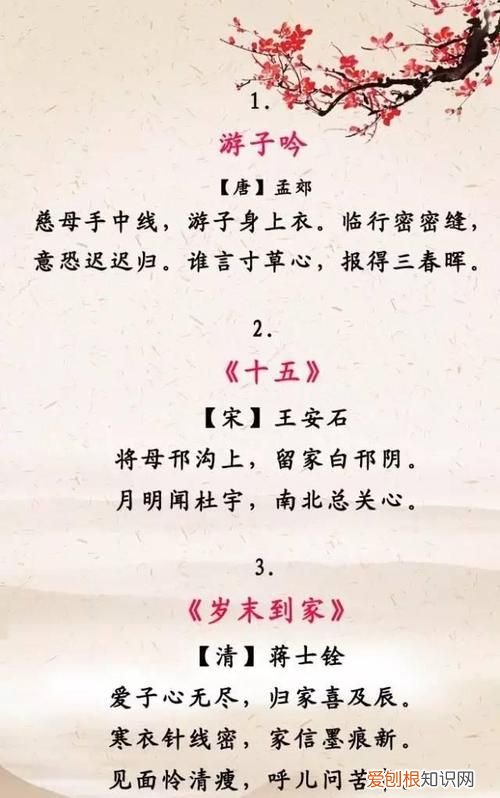 1.
游子吟
【唐】孟郊
慈母手中线，游子身上衣。临行密密缝，
意恐迟迟归。谁言寸草心，报得三春晖。
2.
《十五》
【宋】王安石
将母邗沟上，留家白邗阴。
月明闻杜宇，南北总关心。
3.
《岁末到家》
【清】蒋士铨
爱子心无尽，归家喜及辰。
寒衣针线密，家信墨痕新。
见面怜清瘦，呼儿问苦
爱刨根知识网